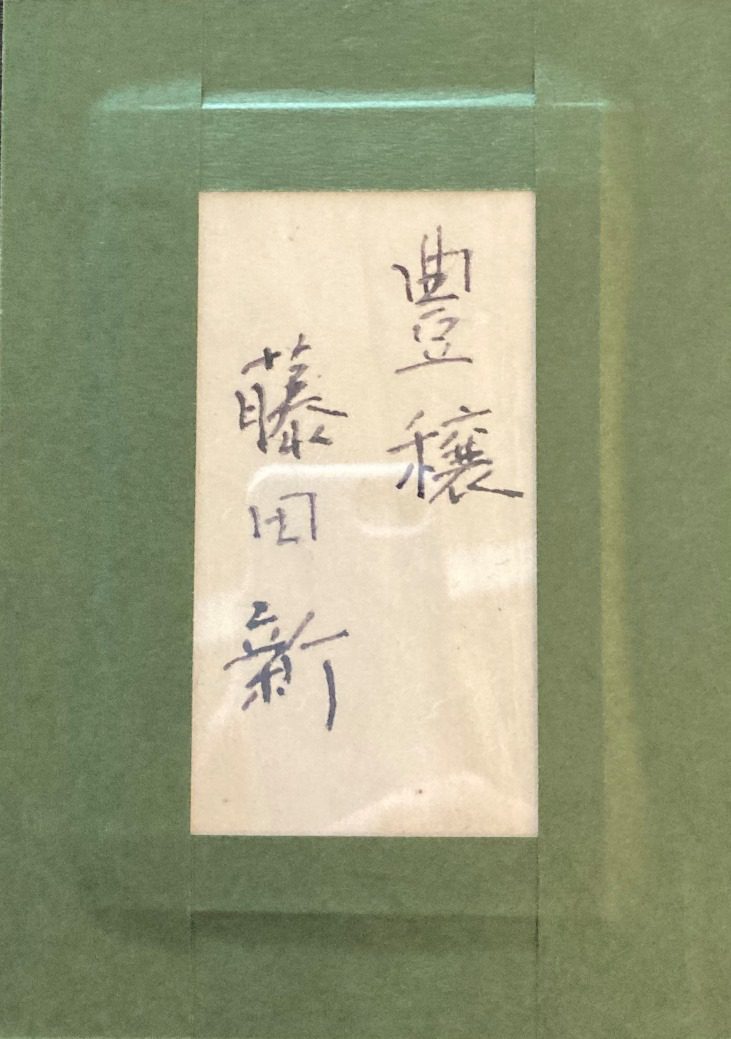 豊穣
藤田新